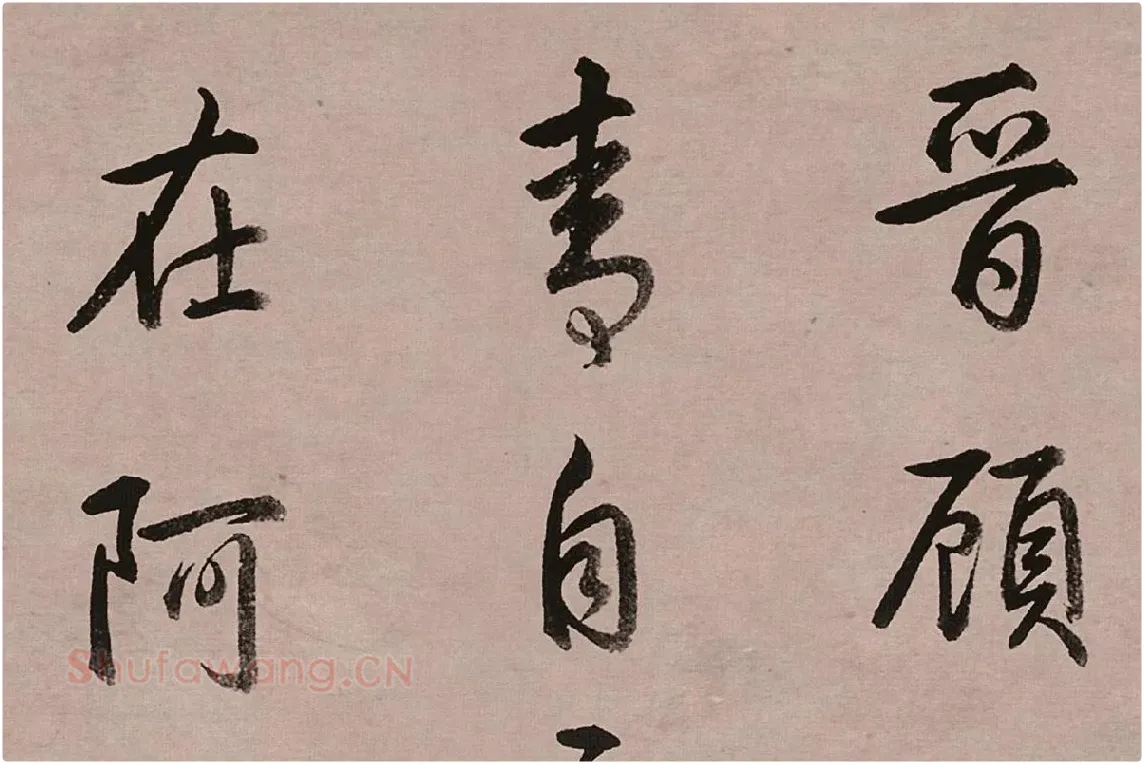 晉顧
青自
在阿
Shufawang.CN